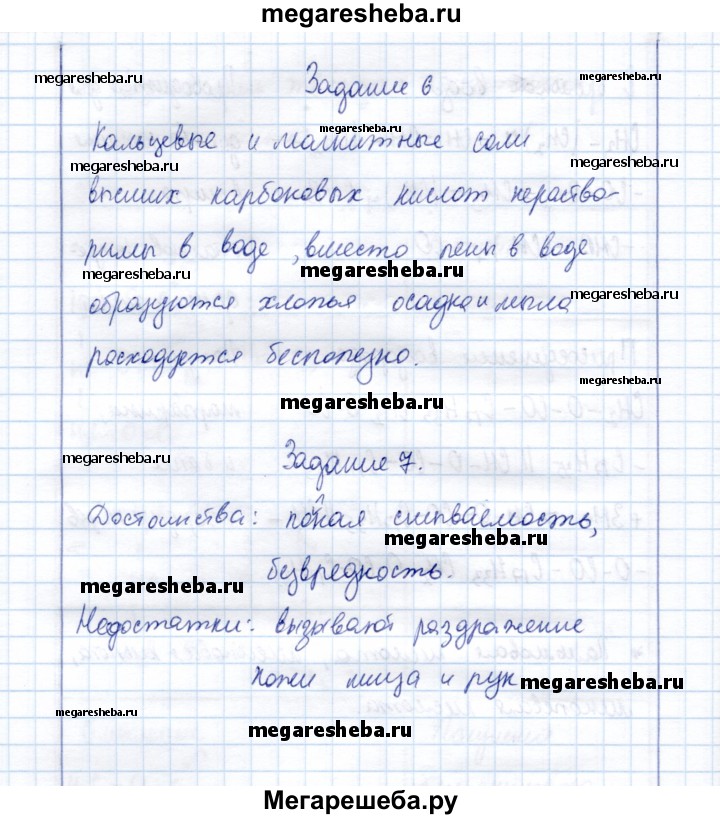 megaresheba.ru
megaresheba.ru
megaresheba.ru
Задание 6
megaresheba.ru
Кальцевые и магнитные соли
megaresheba.ru
megaresheba.ru
высших карбоковых кислот нераство-
римы в воде, вместо пены в воде
megaresheba.ru
megaresheba.ru
образуются хлопья осадка и мыла
megaresheba.ru
расходуется бесполезно.
megaresheba.ru
megaresheba.ru
megaresheba.ru
Задание 7.
Достоинства: смываемость,
megaresheba.ru
безвредность.
megaresheba.ru
Недостатки: вызывают раздражение
кожи лица и рук
megaresheba.ru
megaresheba.ru
megaresheba.ru
Мегарешеба.ру